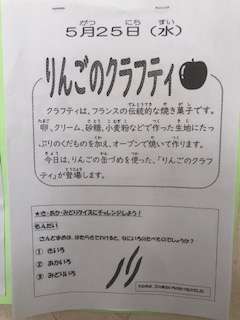 5月25日（水）
りんごのクラフティ
クラフティは、フランスの伝統的な焼き菓子です。
卵、クリーム、砂糖、小麦粉などで作った生地にたっ
ぷりのくだものを加え、オーブンで焼いて作ります。
今日は、りんごの缶づめを使った、「りんごのクラフ
ティ」が登場します。
★き・あか・みどりクイズにチャレンジしよう！
もんだい
さんどまめは、はたらきでわけると、なにいろのたべものでしょうか？
① きいろ
② あかいろ
③ みどりいろ